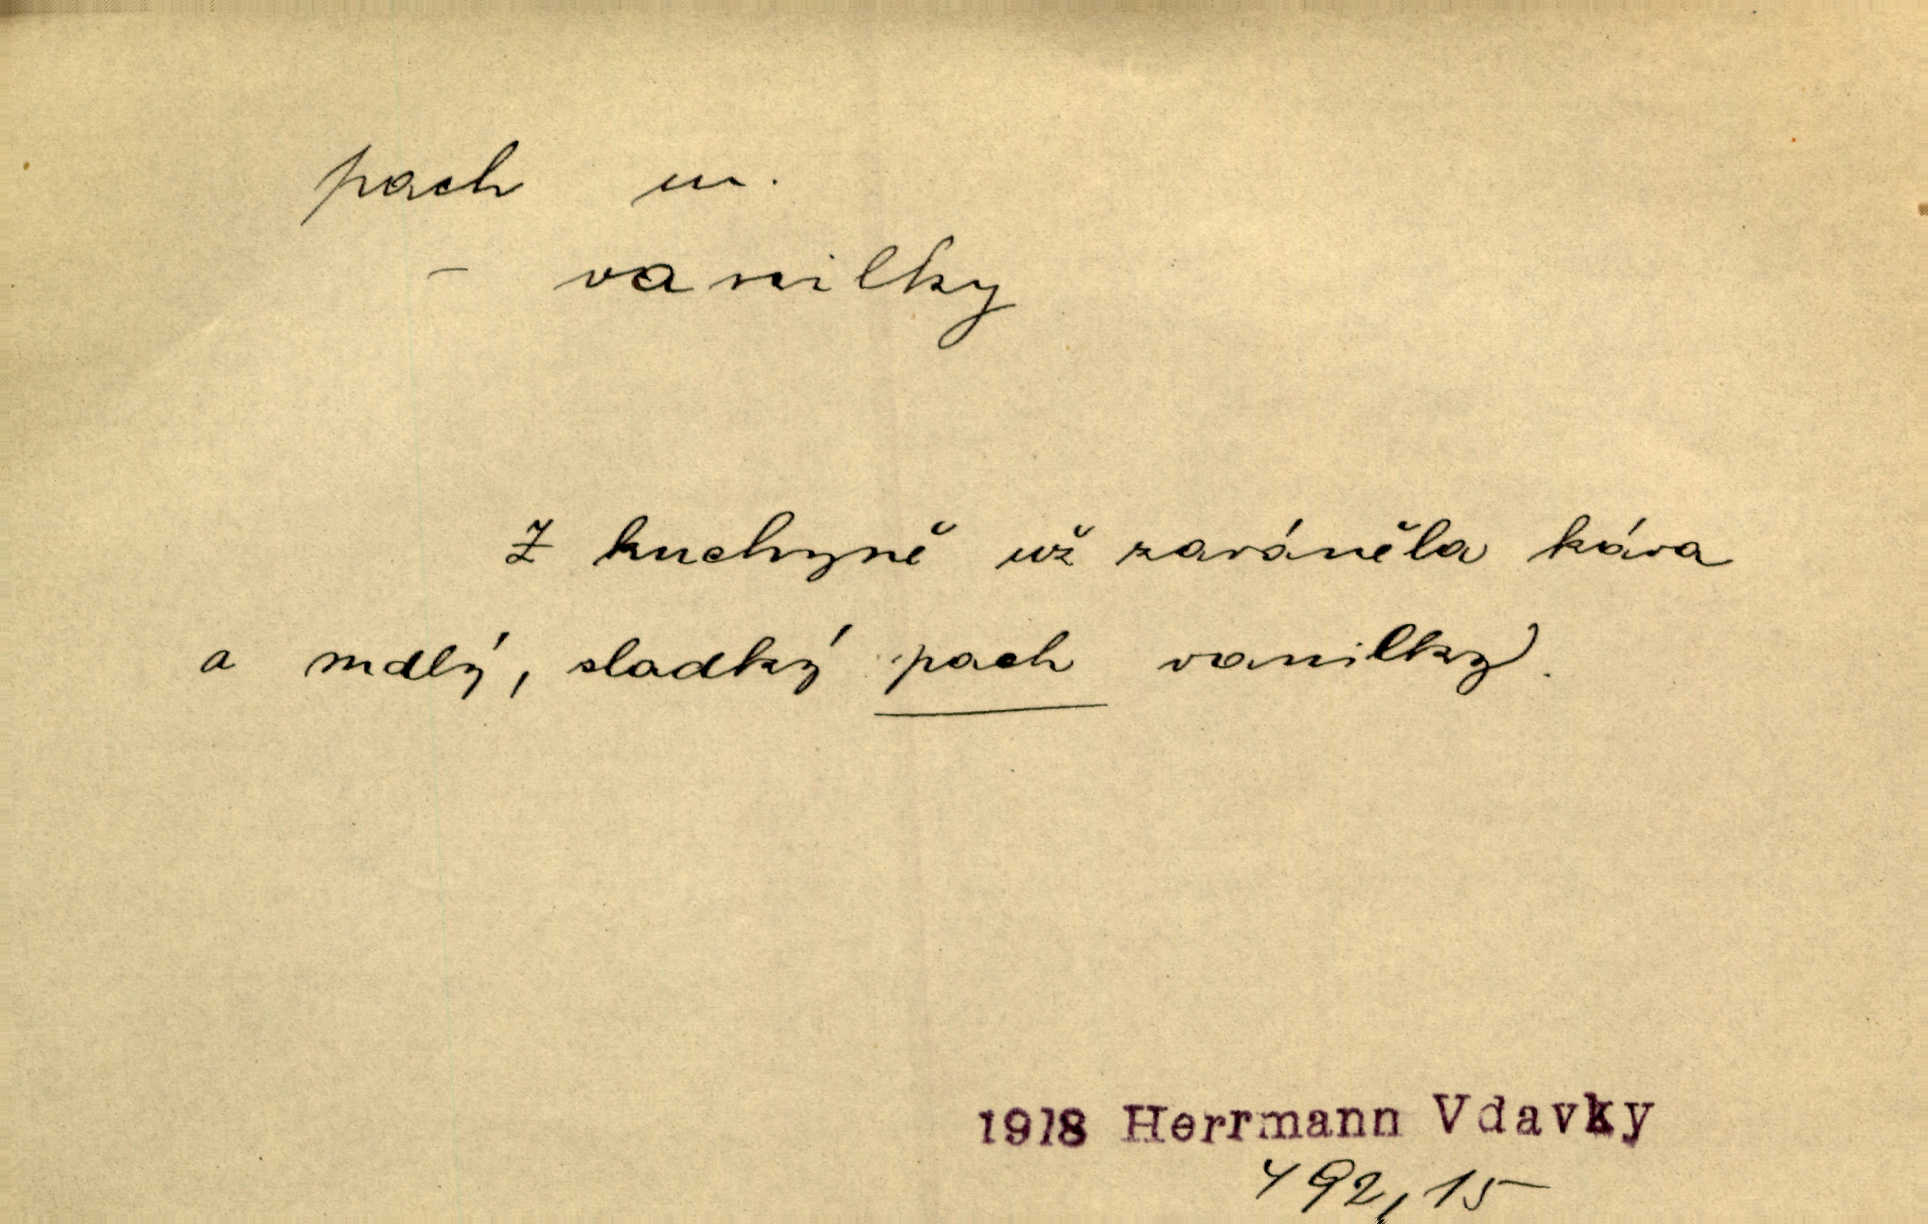 pach m.
- vanilky
Z kuchyně už zaváněla káva
a mdlý, sladký pach vanilky.
1918 Herrmann Vdavky
492,15